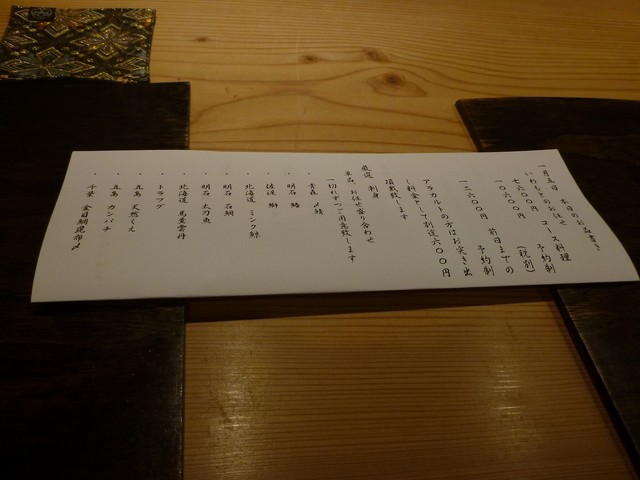 一月五日 本日のお品書き
いわしてのお任せ コース料理
七六〇〇円 (税別) 予約制
一〇六〇〇円 前日までの
一二六〇〇円 予約制
アラカルトの方はお突き出
し料金として別途六〇〇円
頂戴致します
厳選 刺身
単品、お任せ盛り合わせ
一切れずつご用意致します
・ 青森 〆鯖
・ 明石 鰆
・ 佐渡 鰤
・ 北海道 ミンク鯨
・ 明石 石鯛
・ 明石 太刀魚
・ 北海道 馬糞雲丹
・ トラフグ
・ 五島 天然くえ
・ 五島 カンパチ
・ 千葉 金目鯛昆布〆